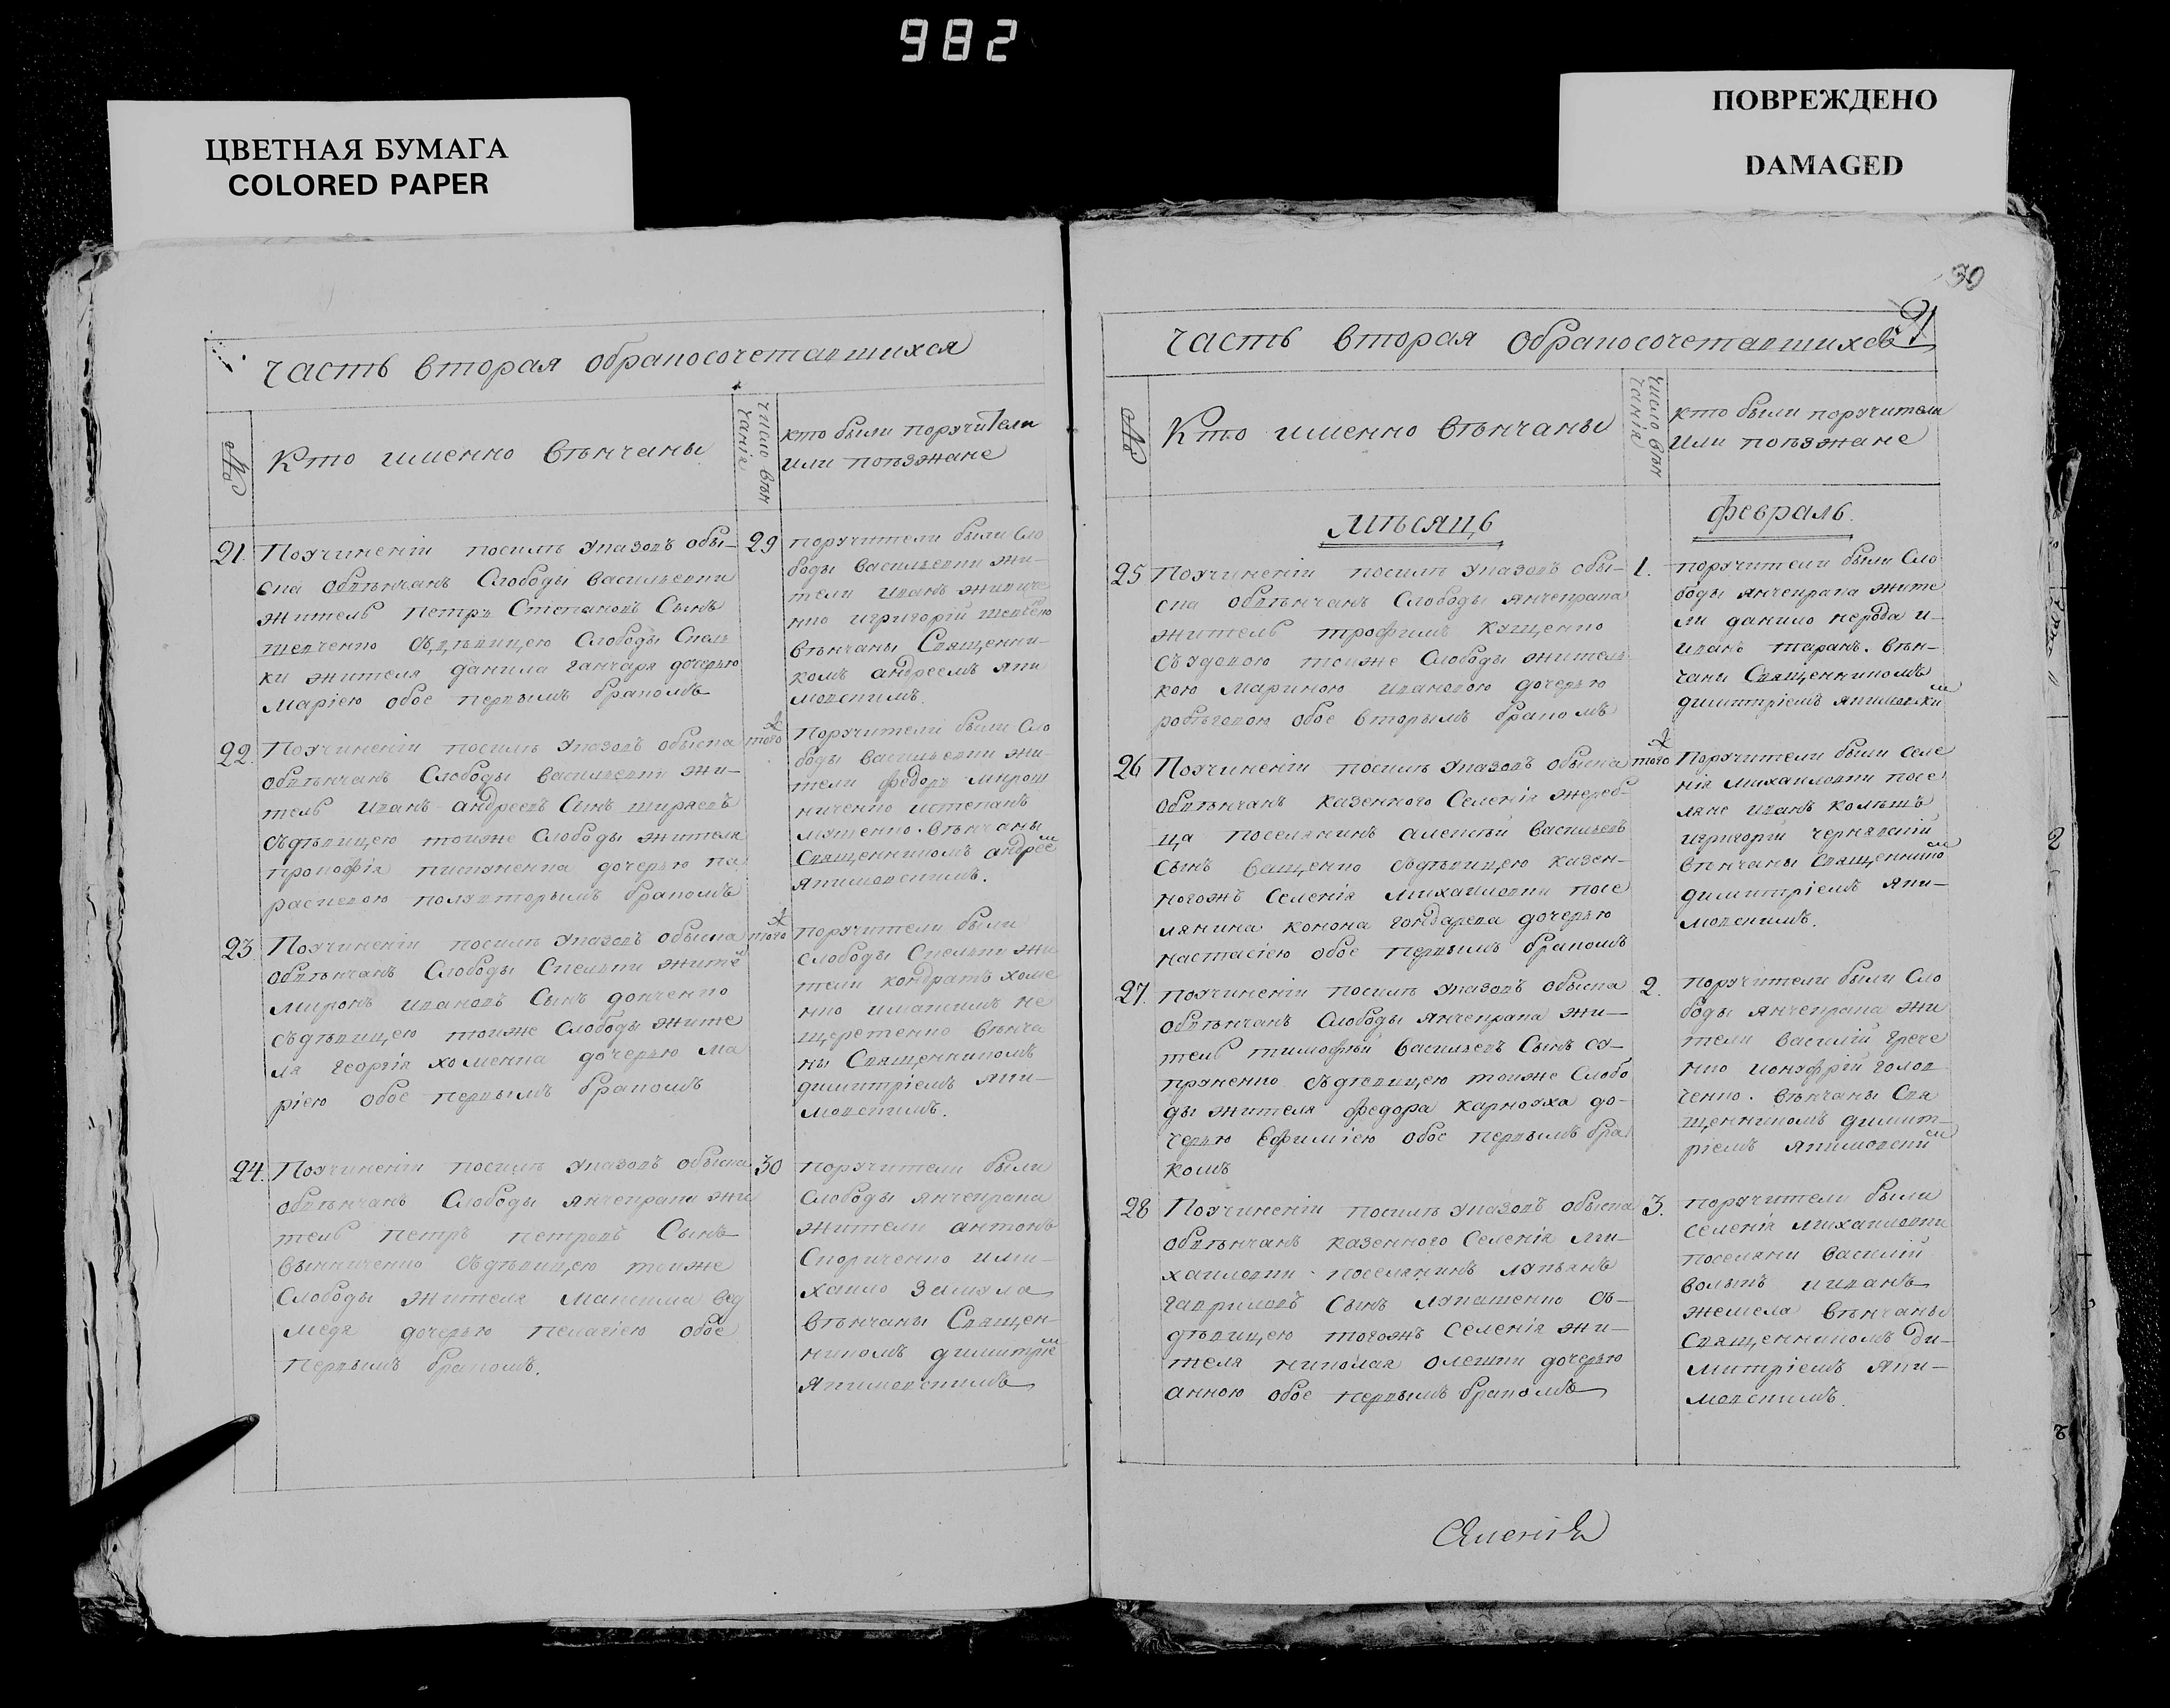 982
ЦВЕТНАЯ БУМАГА
COLORED PAPER
ПОВРЕЖДЕНО
DAMAGED
часть вторая обракосочетавшихся
№
Кто именно вѣнчаны
число вѣн
чанія
кто были поручители
или поѣзжане
21.
Поучиненіи посилѣ указовъ обы-
ска обвѣнчанъ Слободы васильевки
житель петръ Степановъ Сынъ
шевченко съдѣвицею Слободы Спев
ки жителя данила ганчаря дочерью
Маріею обое первымъ бракомъ
29
поручители были Сло
боды васильевки жи-
тели иванъ
игригорій шевченко
вѣнчаны Священни-
комъ андреемъ яки
мовскимъ.
22.
Поучиненіи посилѣ указовъ обыска
обвѣнчанъ Слободы васильевки жи-
тель иванъ андреевъ Сынъ ширяевъ
съдѣвицею тоиже Слободы жителя
прокофія дочерью па
раскевою полувторымъ бракомъ
того ж
Поручители были Сло
боды васильевки жи-
тели федоръ мирош
ниченко истепанъ
вѣнчаны
Священникомъ андрее м
якимовскимъ.
23.
Поучиненіи посилѣ указовъ обыска
обвѣнчанъ Слободы Спевки жите
миронъ ивановъ Сынъ донченко
съдѣвицею тоиже Слободы жите
ля георгія хоменка дочерью ма
ріею обое первымъ бракомъ
того ж
поручители были
слободы Спевки жи
тели кондратъ хоме
нко имаксимъ не
щеретенко вѣнча
ны Священникомъ
димитріемъ яки-
мовскимъ.
24.
Поучиненіи посилѣ указовъ обыска
обвѣнчанъ Слободы янчекрака жи
тель петръ петровъ Сынъ
съдѣвицею тоиже
Слободы жителя максима вед
медя дочерью пелагіею обое
первымъ бракомъ.
30
поручители были
Слободы янчекрака
жители антонъ
Скориченко ими-
хаило
вѣнчаны Священ-
никомъ димитріе м
якимовскимъ
30
часть вторая обракосочетавшихся
№
Кто именно вѣнчаны
число вѣн
чанія
кто были поручители
или поѣзжане
мѣсяцъ
февраль.
25
Поучиненіи посилѣ указовъ обы-
ска обвѣнчанъ Слободы янчекрака
житель трофимъ кущенко
съудовою тоиже Слободы житель
кою Мариною ивановою дочерью
обое вторымъ бракомъ
1.
поручители были Сло
боды янчекрака жите
ли данило и-
иванъ таранъ. вѣн-
чани Священникомъ
димитріемъ якимовски м
26
Поучиненіи посилѣ указовъ обыска
обвѣнчанъ казенного Селенія жереб-
ца поселянинъ алексѣй васильевъ
Сынъ ващенко содѣвицею казен-
ногожъ Селенія михаиловки посе
лянина конона гондарева дочерью
настасіею обое первымъ бракомъ
того ж
Поручители были селе
нія михаиловки посе
ляне иванъ
игригорій чернявскій
вѣнчаны Священнико м
димитріемъ яки-
мовскимъ.
27.
поучиненіи посилѣ указовъ обыска
обвѣнчанъ Слободы янчекрака жи-
тель тимофѣй васильевъ Сынъ су-
пруненко съдѣвицею тоиже Слобо
ды жителя федора карнауха до-
черью Ефиміею обое первымъ бра
комъ
2.
поручители были Сло
боды янчекрака жи
тели василій грече
нко ионуфрій голов
ченко. вѣнчаны Свя
щенникомъ димит-
ріемъ якимовски м
28
Поучиненіи посилѣ указовъ обыска
обвѣнчанъ казенного Селенія ми-
хаиловки поселянинъ лукьянъ
гавриловъ Сынъ лукашенко съ-
дѣвицею тогожъ Селенія жи-
теля николая олешки дочерью
анною обое первымъ бракомъ
3.
поручители были
селенія михаиловки
поселяни василій
волыкъ ииванъ
вѣнчаны
Священникомъ ди-
митріемъ яки-
мовскимъ.